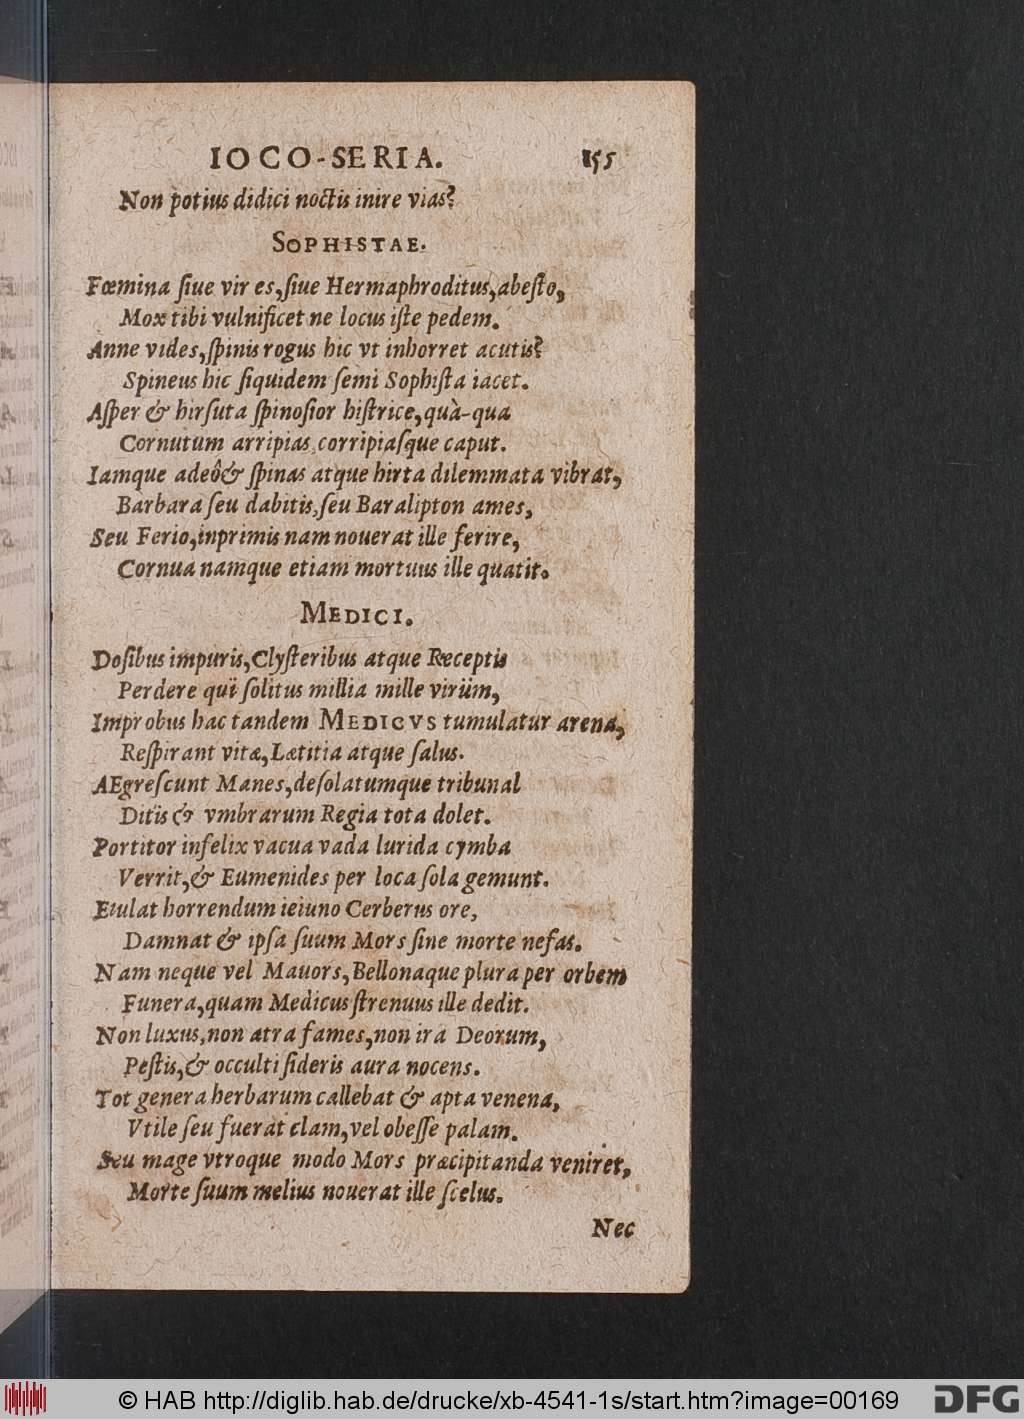 IOCO-SERIA. 155
Non potius didici noctis inire vias?
SOPHISTAE.
Fœmina ſiue vir es, ſiue Hermaphroditus, abeſto,
Mox tibi vulnificet ne locus iſte pedem.
Anne vides, ſpinis rogus hic vt inhorret acutis?
Spineus hic ſiquidem ſemi Sophiſta iacet.
Aſper & hirſuta ſpinoſior hiſtrice, quà-qua
Cornutum arripias, corripiaſque caput.
Iamque adeô & ſpinas atque hirta dilemmata vibrat,
Barbara ſeu dabitis, ſeu Baralipton ames,
Seu Ferio, inprimis nam nouerat ille ferire,
Cornua namque etiam mortuus ille quatit.
MEDICI.
Doſibus impuris, Clyſteribus atque Receptis
Perdere quï ſolitus millia mille virûm,
Improbus hac tandem MEDICVS tumulatur arena,
Reſpirant vitæ, Lætitia atque ſalus.
AEgreſcunt Manes, deſolatumque tribunal
Ditis & vmbrarum Regia tota dolet.
Portitor infelix vacua vada lurida cymba
Verrit, & Eumenides per loca ſola gemunt.
Eiulat horrendum ieiuno Cerberus ore,
Damnat & ipſa ſuum Mors ſine morte nefas.
Nam neque vel Mauors, Bellonaque plura per orbem
Funera, quam Medicus ſtrenuus ille dedit.
Non luxus, non atra fames, non ira Deorum,
Peſtis, & occulti ſideris aura nocens.
Tot genera herbarum callebat & apta venena,
Vtile ſeu fuerat clam, vel obeſſe palam.
Seu mage vtroque modo Mors præcipitanda veniret,
Morte ſuum melius nouerat ille ſcelus.
Nec
© HAB http://diglib.hab.de/drucke/xb-4541-1s/start.htm?image=00169
DFG